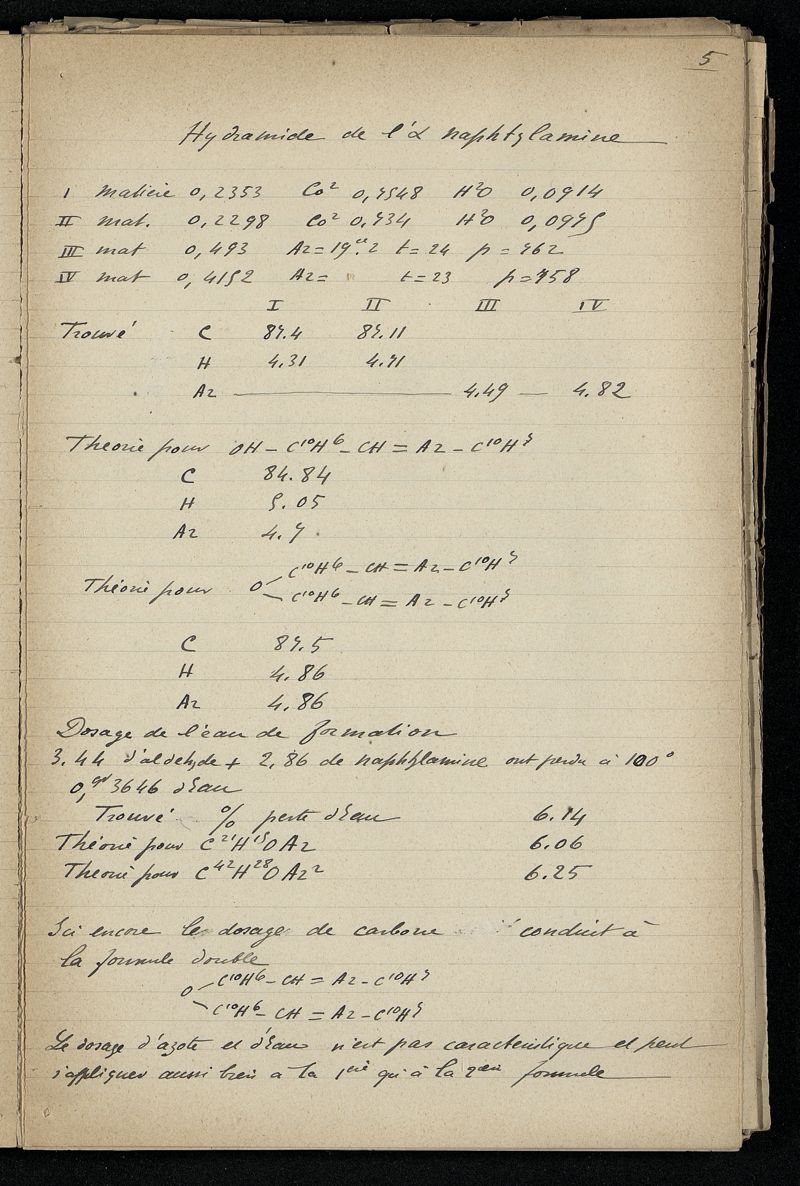 5
Hydramide de l'α naphtylamine
I matière 0,2353 Co² 0,7548 H²O 0,0914
II mat. 0,2298 Co² 0,734 H²O 0,0975
III mat 0,493 Az = 19cc.2 t = 24 p = 762
IV mat 0,4152 Az = t = 23 p = 758
I II III IV
Trouvé C 87.4 87.11
H 4.31 4.71
Az — 4.49 — 4.82
Théorie pour OH – C¹⁰H⁶ – CH = Az – C¹⁰H⁷
C 84.84
H 5.05
Az 4.7
Théorie pour O C¹⁰H⁶ – CH = Az – C¹⁰H⁷
C¹⁰H⁶ – CH = Az – C¹⁰H⁷
C 87.5
H 4.86
Az 4.86
Dosage de l'eau de formation
3.44 d'aldehyde + 2,86 de naphtylamine ont perdu à 100°
0,gr 3646 d'eau
Trouvé % perte d'eau 6.14
Théorie pour C²¹H¹⁵OAz 6.06
Théorie pour C⁴²H²⁸OAz² 6.25
Ici encore le dosage de carbone conduit à
la formule double
O C¹⁰H⁶ – CH = Az – C¹⁰H⁷
C¹⁰H⁶ – CH = Az – C¹⁰H⁷
Le dosage d'azote et d'eau n'est pas caracteristique et peut
s'appliquer aussi bien à la 1ère qu'à la 2em formule